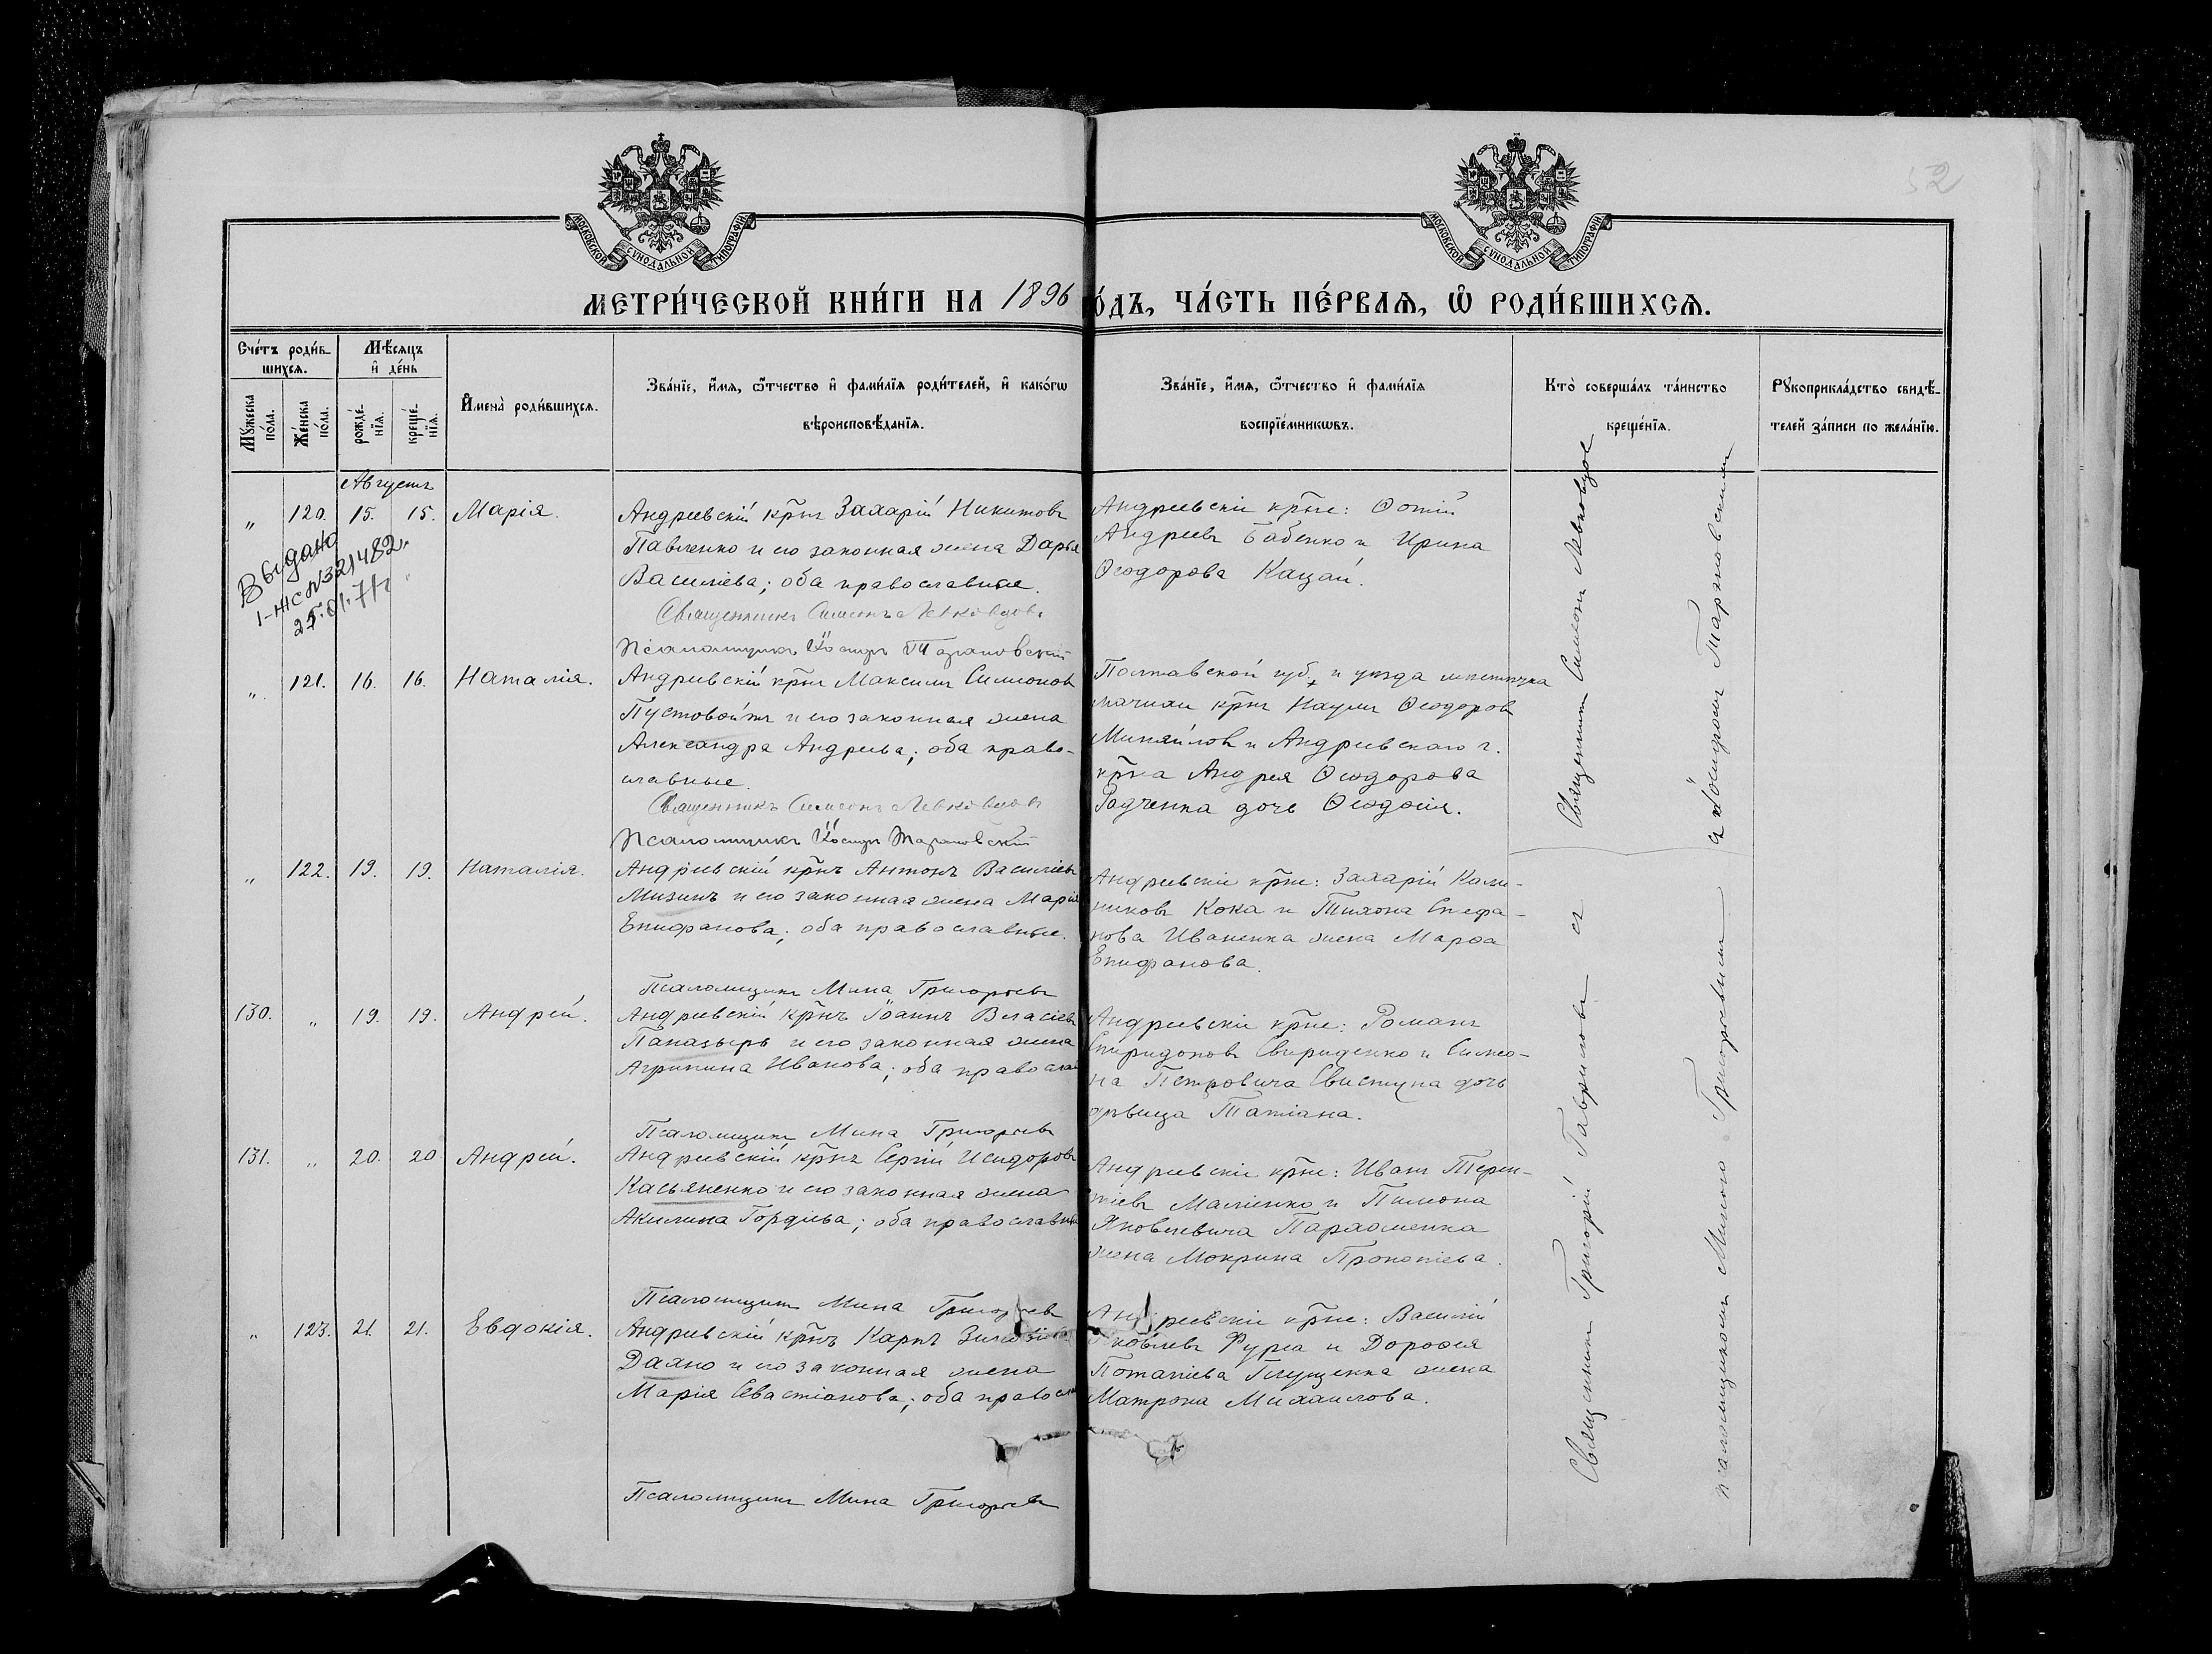 52
МОСКОВСКОЙ СѴНОДАЛЬНОЙ ТИПОГРАФІИ
МОСКОВСКОЙ СѴНОДАЛЬНОЙ ТИПОГРАФІИ
МЕТРИ́ЧЕСКОЙ КНИ́ГИ НА 1896
О́ДЪ, ЧА́СТЬ ПЕ́РВАѦ, Ѡ҆ РОДИ́ВШИХСѦ.
Сче́тъ роди́в-
шихсѧ.
Мѣ́сѧцъ
и҆ де́нь
Мꙋ́жеска
по́ла.
Же́нска
по́ла.
рожде́-
нїѧ.
креще́-
нїѧ.
И҆мена̀ роди́вшихсѧ.
Зва́нїе, и҆́мѧ, ѻ҆́тчество и҆ фами́лїѧ роди́телей, и҆ како́гѡ
вѣроисповѣ́данїѧ.
Зва́нїе, и҆́мѧ, ѻ҆́тчество и҆ фами́лїѧ
воспрїе́мникѡвъ.
Кто̀ соверша́лъ та́инство
креще́нїѧ.
Рꙋкоприкла́дство свидѣ́-
телей за́писи по жела́нїю.
Августъ
„ 120. 15. 15. Марія.
Андреевскій кр̃нъ Захарій Никитовъ
Павленко и его законная жена Дарья
Василіева; оба православные.
Священникъ Симеонъ Левковцовъ
Псаломщикъ Іосифъ Тарановскій
Андреевскіе кр̃не: Ѳотій
Андреевъ Бабенко и Ирина
Ѳеодорова Кацай.
Выдано
1-ЖС № 321482.
25.01.71г
„ 121. 16. 16. Наталія.
Андреевскій кр̃нъ Максимъ Симеоновъ
Пустовойтъ и его законная жена
Александра Андреева; оба право-
славные.
Священникъ Симеонъ Левковцовъ
Псаломщикъ Іосифъ Тарановскій
Полтавской губ. и уѣзда мѣстечка
Мачихи кр̃нъ Наумъ Ѳеодоровъ
Миняйловъ и Андреевскаго г.
кр̃на Андрея Ѳеодорова
Радченка дочь Ѳеодосія.
„ 122. 19. 19. Наталія.
Андреевскій кр̃нъ Антонъ Василіевъ
Мизинъ и его законная жена Марія
Епифанова; оба православные.
Псаломщикъ Мина Григорьевъ
Андреевскіе кр̃не: Захарій Кали-
никовъ Кока и Тихона Стефа-
нова Иваненка жена Марѳа
Епифанова.
130. „ 19. 19. Андрей.
Андреевскій кр̃нъ Іоаннъ Власіевъ
Паназырь и его законная жена
Агрипина Иванова; оба правосла
Псаломщикъ Мина Григорьевъ
Андреевскіе кр̃не: Романъ
Спиридоновъ Свириденко и Симео-
на Петровича Свистуна дочь
дѣвица Татіана.
131. „ 20. 20 Андрей.
Андреевскій кр̃нъ Сергій Исидоровъ
Касьяненко и его законная жена
Акилина Гордіева; оба православны
Псаломщикъ Мина Григорьевъ
Андреевскіе кр̃не: Иванъ Терен-
тіевъ Маліенко и Пимона
Яковлевича Пархоменка
жена Мокрина Прокопіева.
„ 123. 21. 21. Евдокія.
Андреевскій кр̃нъ Карпъ Зиновіевъ
Дахно и его законная жена
Марія Севастіанова; оба правосла
Псаломщикъ Мина Григорьевъ
Андреевскіе кр̃не: Василій
Яковлевъ Фурса и Дороѳея
Потапіева Глущенка жена
Матрона Михаилова.
Священникъ Симеонъ Левковцовъ
съ псаломщикомъ Іосифомъ Тарановскимъ
Священникъ Григорій Гавриловъ съ
псаломщикомъ Миною Григорьевымъ